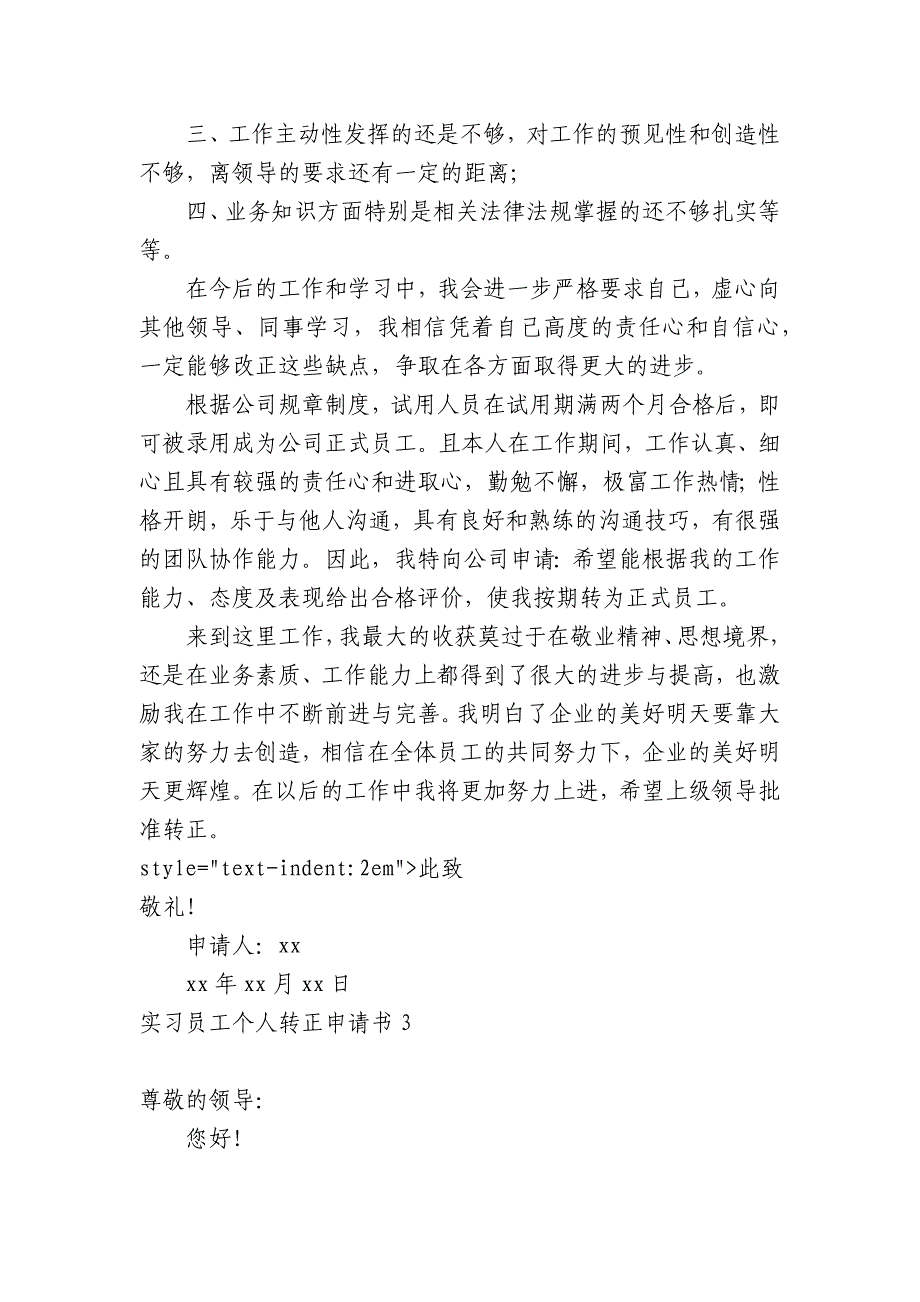 三、工作主动性发挥的还是不够，对工作的预见性和创造性
不够，离领导的要求还有一定的距离；
四、业务知识方面特别是相关法律法规掌握的还不够扎实等
等。
在今后的工作和学习中，我会进一步严格要求自己，虚心向
其他领导、同事学习，我相信凭着自己高度的责任心和自信心，
一定能够改正这些缺点，争取在各方面取得更大的进步。
根据公司规章制度，试用人员在试用期满两个月合格后，即
可被录用成为公司正式员工。且本人在工作期间，工作认真、细
心且具有较强的责任心和进取心，勤勉不懈，极富工作热情；性
格开朗，乐于与他人沟通，具有良好和熟练的沟通技巧，有很强
的团队协作能力。因此，我特向公司申请：希望能根据我的工作
能力、态度及表现给出合格评价，使我按期转为正式员工。
来到这里工作，我最大的收获莫过于在敬业精神、思想境界，
还是在业务素质、工作能力上都得到了很大的进步与提高，也激
励我在工作中不断前进与完善。我明白了企业的美好明天要靠大
家的努力去创造，相信在全体员工的共同努力下，企业的美好明
天更辉煌。在以后的工作中我将更加努力上进，希望上级领导批
准转正。
style="text-indent:2em">此致
敬礼！
申请人：xx
xx 年 xx 月 xx 日
实习员工个人转正申请书 3
尊敬的领导：
您好！